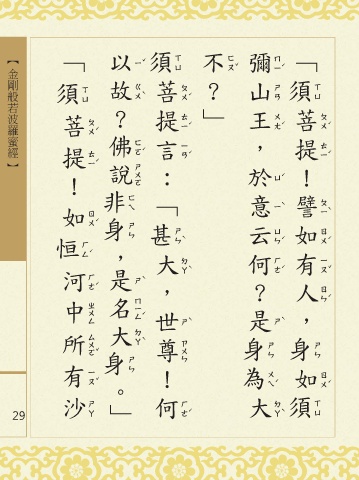 「須菩提！譬如有人，身如須
彌山王，於意云何？是身為大
不？」
須菩提言：「甚大，世尊！何
以故？佛說非身，是名大身。」
「須菩提！如恒河中所有沙
【金剛般若波羅蜜經】
29